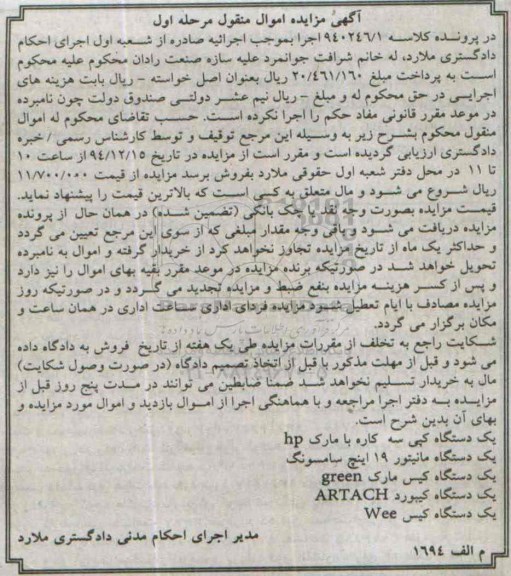 آگهی مزایده اموال منقول مرحله اول
در پرونده کلاسه ۹۴۰۲۴۶/۱ اجرا بموجب اجرائیه صادره از شعبه اول اجرای احکام
دادگستری ملارد، له خانم شرافت جوانمرد علیه سازه صنعت رادان محکوم علیه محکوم
است به پرداخت مبلغ ۲۰/۴۶۱/۱۶۰ ریال بعنوان اصل خواسته - ریال بابت هزینه های
اجرایی در حق محکوم له و مبلغ - ریال نیم عشر دولتی صندوق دولت چون نامبرده
در موعد مقرر قانونی مفاد حکم را اجرا نکرده است. حسب تقاضای محکوم له اموال
منقول محکوم بشرح زیر به وسیله این مرجع توقیف و توسط کارشناس رسمی / خبره
دادگستری ارزیابی گردیده است و مقرر است از مزایده در تاریخ ۹۴/۱۲/۱۵ از ساعت ۱۰
تا ۱۱ در محل دفتر شعبه اول حقوقی ملارد بفروش برسد مزایده از قیمت ۱۱/۷۰۰/۰۰۰
ریال شروع می شود و مال متعلق به کسی است که بالاترین قیمت را پیشنهاد نماید.
قیمت مزایده بصورت وجه نقد یا چک بانکی (تضمین شده) در همان حال از پرونده
مزایده دریافت می شود و باقی وجه مقدار مبلغی که از سوی این مرجع تعیین می گردد
و حداکثر یک ماه از تاریخ مزایده تجاوز نخواهد کرد از خریدار گرفته و اموال به نامبرده
تحویل خواهد شد در صورتیکه برنده مزایده در موعد مقرر بقیه بهای اموال را نیز دارد
و پس از کسر هزینه مزایده بنفع ضبط و مزایده تجدید می گردد و در صورتیکه روز
مزایده مصادف با ایام تعطیل شود مزایده فردای اداری ساعت اداری در همان ساعت و
مکان برگزار می گردد.
شکایت راجع به تخلف از مقررات مزایده طی یک هفته از تاریخ فروش به دادگاه داده
می شود و قبل از مهلت مذکور یا قبل از اتخاذ تصمیم دادگاه (در صورت وصول شکایت)
مال به خریدار تسلیم نخواهد شد ضمنا ضابطین می توانند در مدت پنج روز قبل از
مزایده به دفتر اجرا مراجعه و با هماهنگی اجرا از اموال بازدید و اموال مورد مزایده و
بهای آن بدین شرح است.
یک دستگاه کپی سه کاره با مارک hp
یک دستگاه مانیتور ۱۹ اینچ سامسونگ
یک دستگاه کیس مارک green
یک دستگاه کیبورد ARTACH
یک دستگاه کیس Wee
مدیر اجرای احکام مدنی دادگستری ملارد
م الف ۱۶۹۴